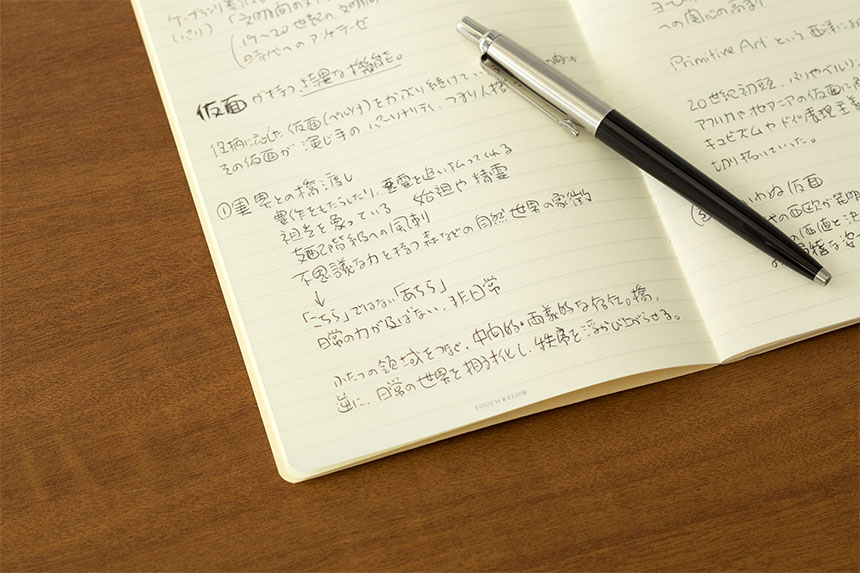 (パリ)
19～20世紀の文明
時代へのアンチテーゼ
仮面が持つ、特異な機能。
性格に応じた仮面(ペルソナ)をかぶり続けて
その仮面が演じ手のパーソナリティ、つまり人格
①異界との橋渡し
豊作をもたらしたり、悪霊を追い払ってくれる
祖先を象っている 始祖や精霊
支配階級への風刺
不思議な力を持つ森などの自然世界の象徴
↓
「こちら」ではない「あちら」
日常の力が及ばない、非日常
ふたつの領域をつなぐ、中間的・両義的な存在。橋。
逆に、日常の世界を相対化し、秩序を浮かび上がらせる。
TOUCH&FLOW
への関心の高まり
Primitive Artという西洋に
20世紀初頭、パリやベルリン
アフリカやオセアニアの仮面
キュビズムやドイツ表現主義
切り拓いていった。
いわぬ仮面
の西欧が
の価値を決
な姿